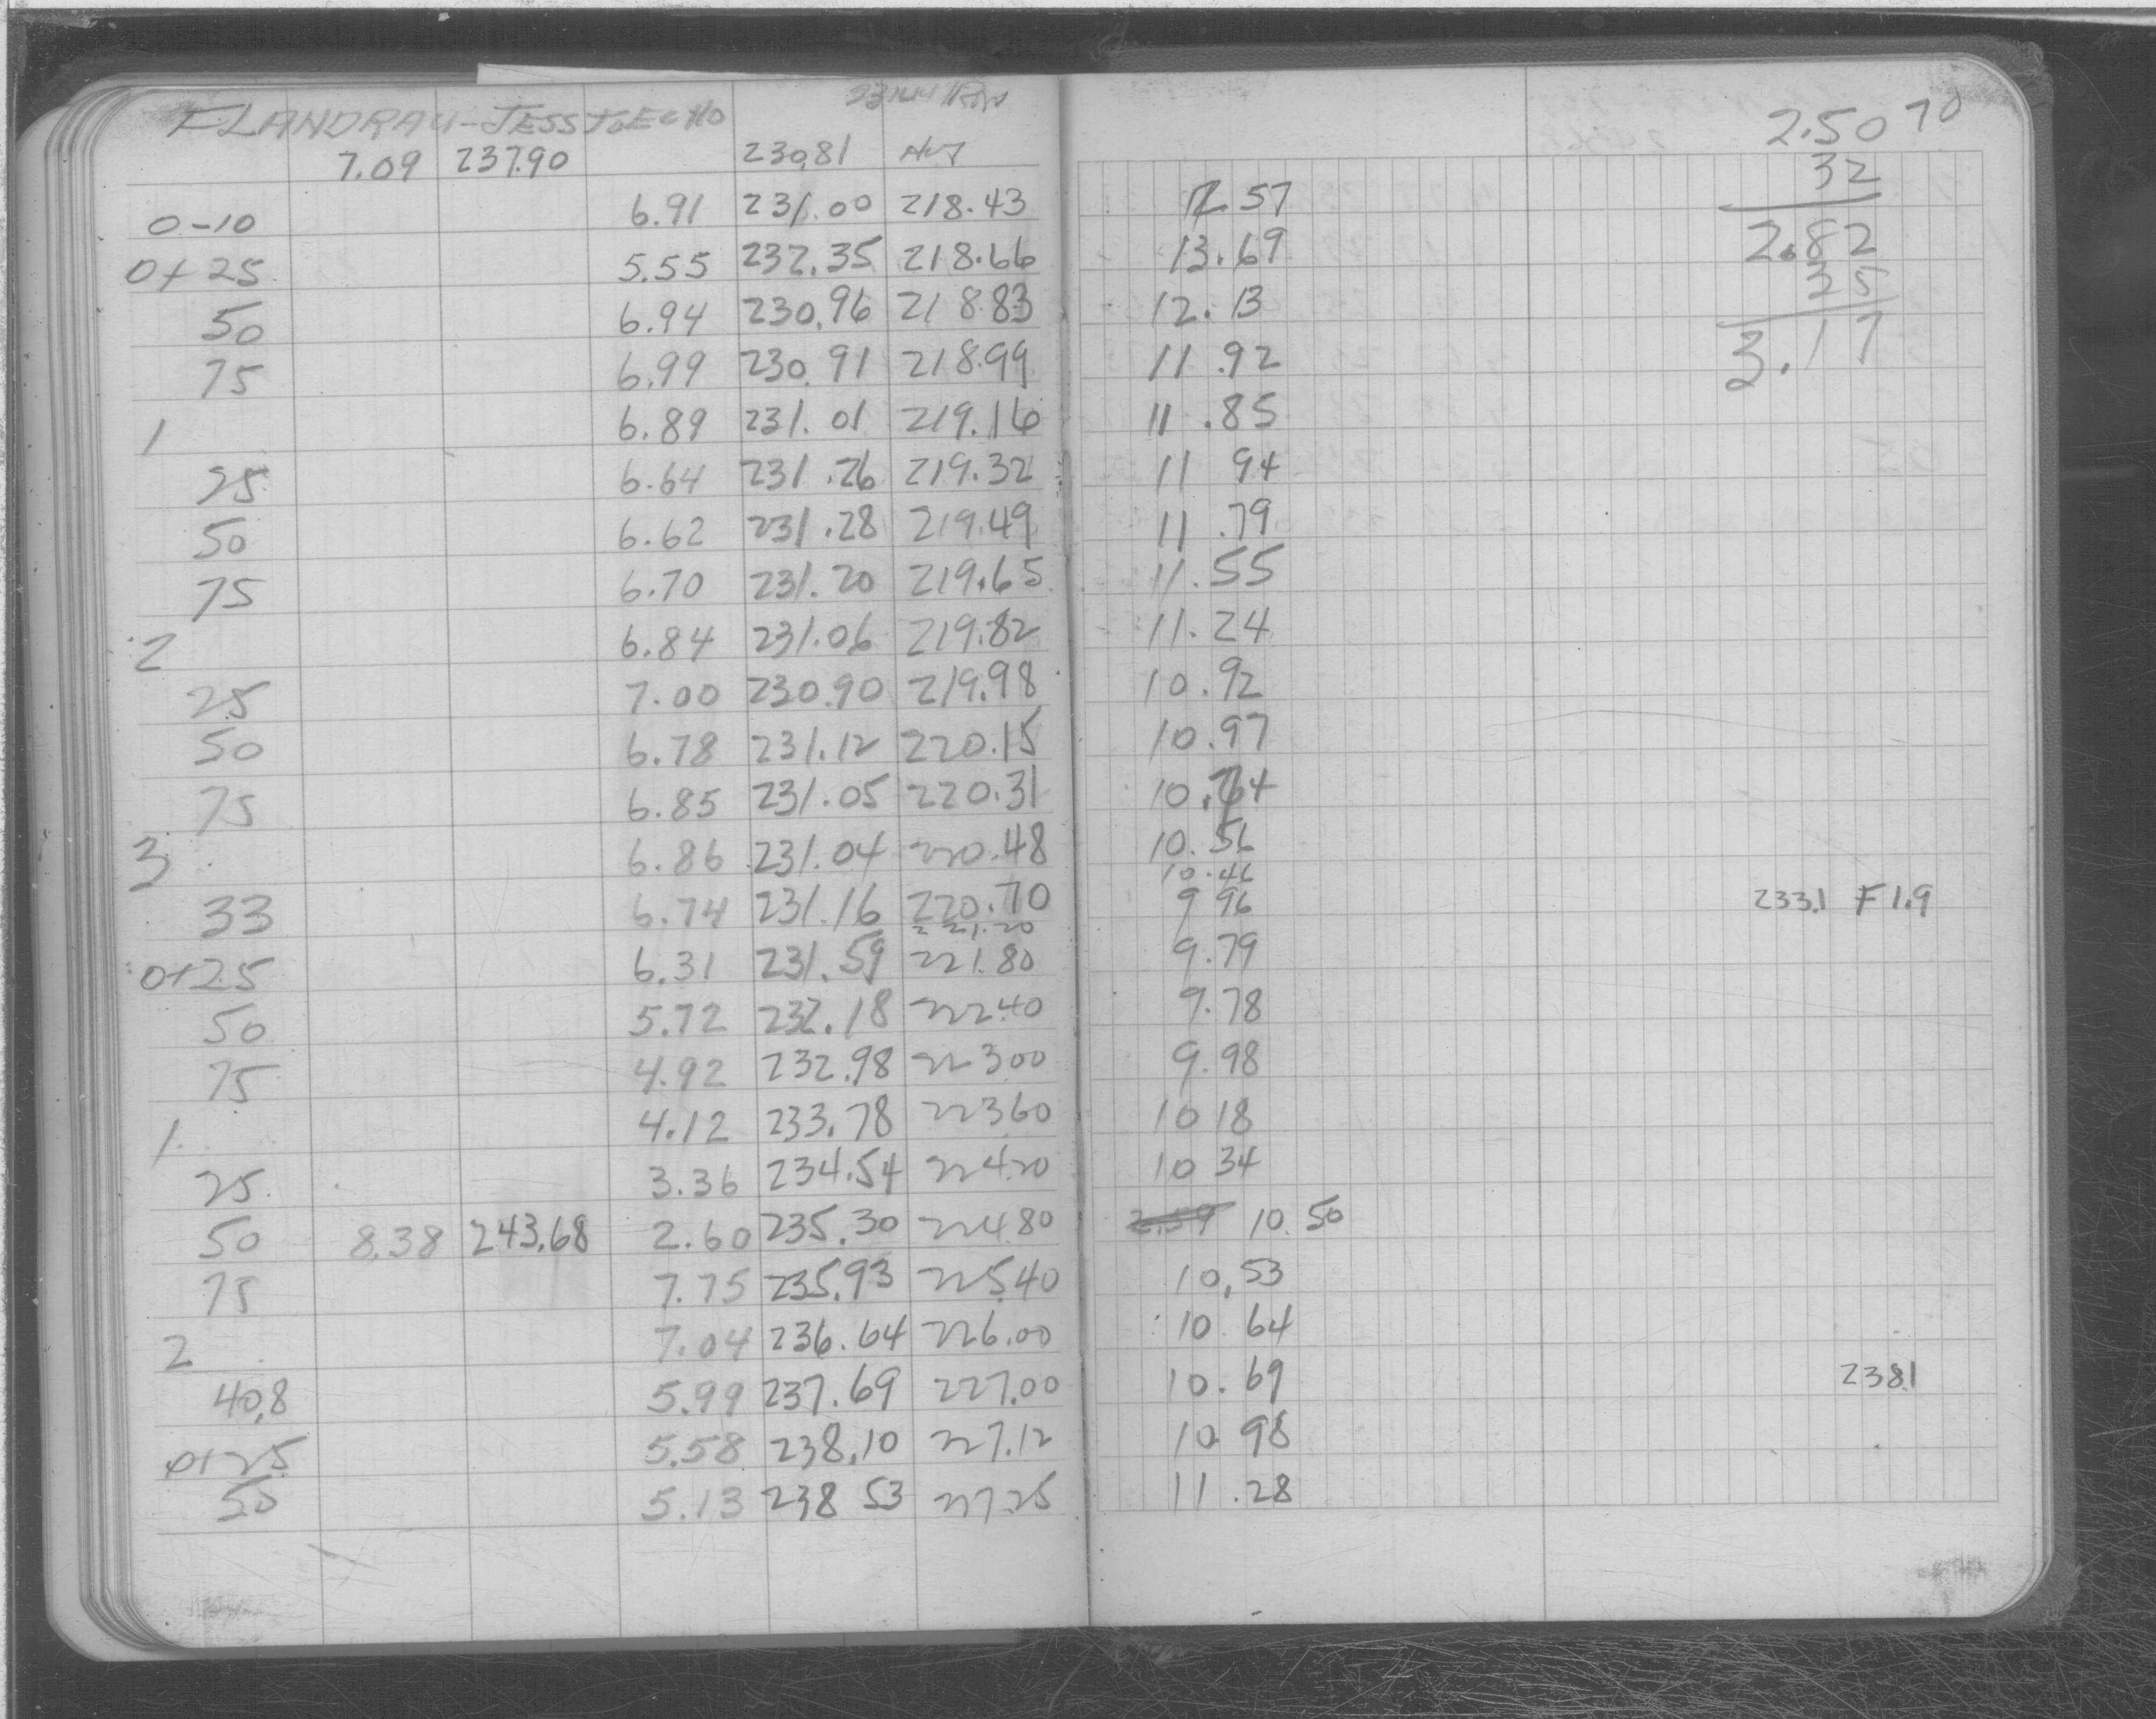 FLANDRAU-JESS TO ECHO
7.09 237.90 230.81
0-10 6.91 231.00 218.43 12 57
0+25 5.55 232.35 218.66 13.69
50 6.94 230.96 218.83 12.13
75 6.99 230.91 218.99 11.92
1 6.89 231.01 219.16 11.85
25 6.64 231.26 219.32 11 94
50 6.62 231.28 219.49 11.79
75 6.70 231.20 219.65 11.55
2 6.84 231.06 219.82 11.24
25 7.00 230.90 219.98 10.92
50 6.78 231.12 220.15 10.97
75 6.85 231.05 220.31 10.74
3 6.86 231.04 220.48 10.56
10.46
33 6.74 231.16 220.70 9 96 233.1 F 1.9
221.20
0+25 6.31 231.59 221.80 9.79
50 5.72 232.18 222.40 9.78
75 4.92 232.98 223 00 9.98
1 4.12 233.78 223 60 10 18
25 3.36 234.54 224.20 10 34
50 8.38 243.68 2.60 235.30 224.80 2.59 10.50
75 7.75 235.93 225.40 10.53
2 7.04 236.64 226.00 10 64
40.8 5.99 237.69 227.00 10.69 238.1
0+25 5.58 238.10 227.12 10 98
50 5.13 238 53 227.25 11.28
2.50 70
32
2.82
35
3.17